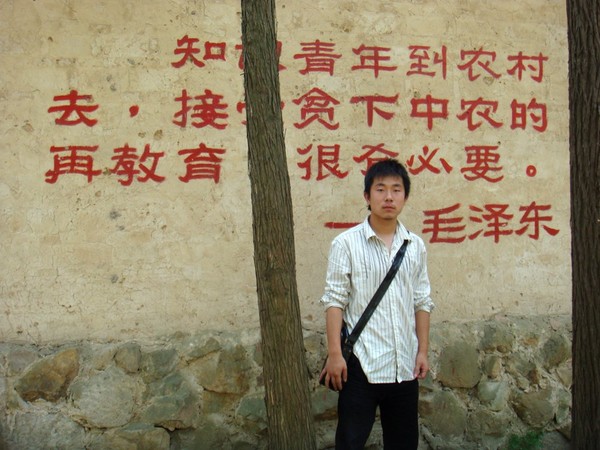 知识青年到农村
去，接受贫下中农的
再教育 很有必要。
—毛泽东